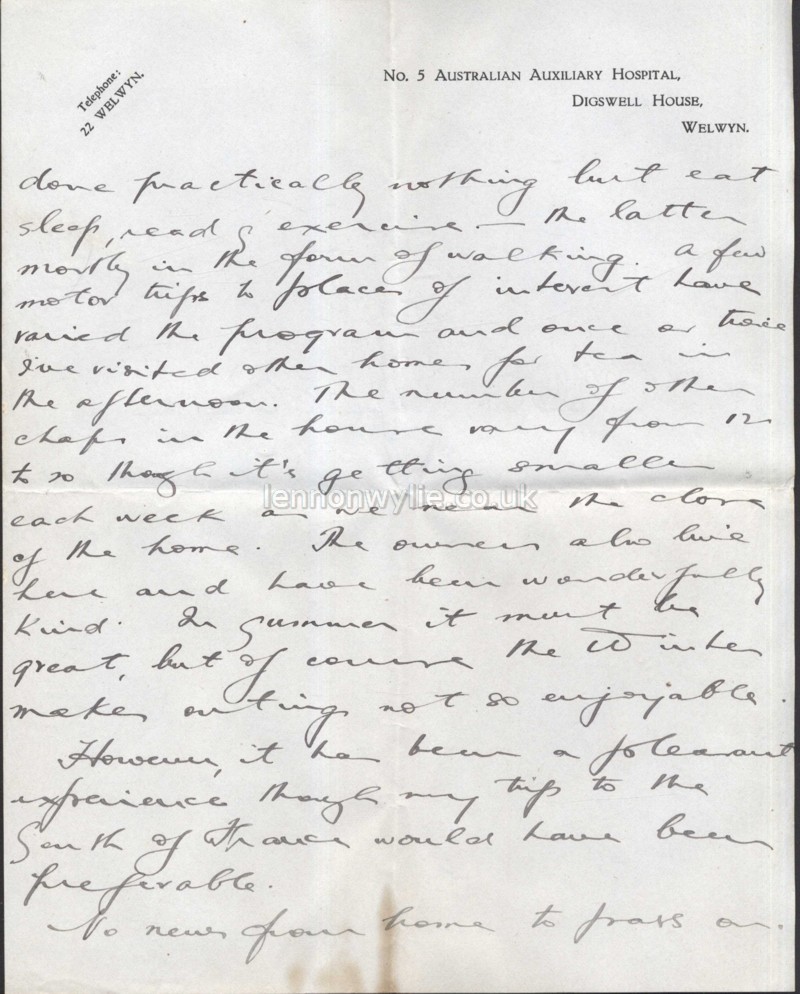 Telephone:
22 WELWYN.
No. 5 AUSTRALIAN AUXILIARY HOSPITAL,
DIGSWELL HOUSE,
WELWYN.
done practically nothing but eat
sleep, read & exercise — the latter
mostly in the form of walking. A few
motor trips to places of interest have
varied the program and once or twice
I've visited other homes for tea in
the afternoon. The number of other
chaps in the house vary from 12
to 20 though it's getting smaller
lennonwylie.co.uk
each week as we near the close
of the home. The owners also live
here and have been wonderfully
kind. In Summer it must be
great, but of course the Winter
makes outings not so enjoyable.
However, it has been a pleasant
experience though my trip to the
South of France would have been
preferable.
No news from home to pass on.